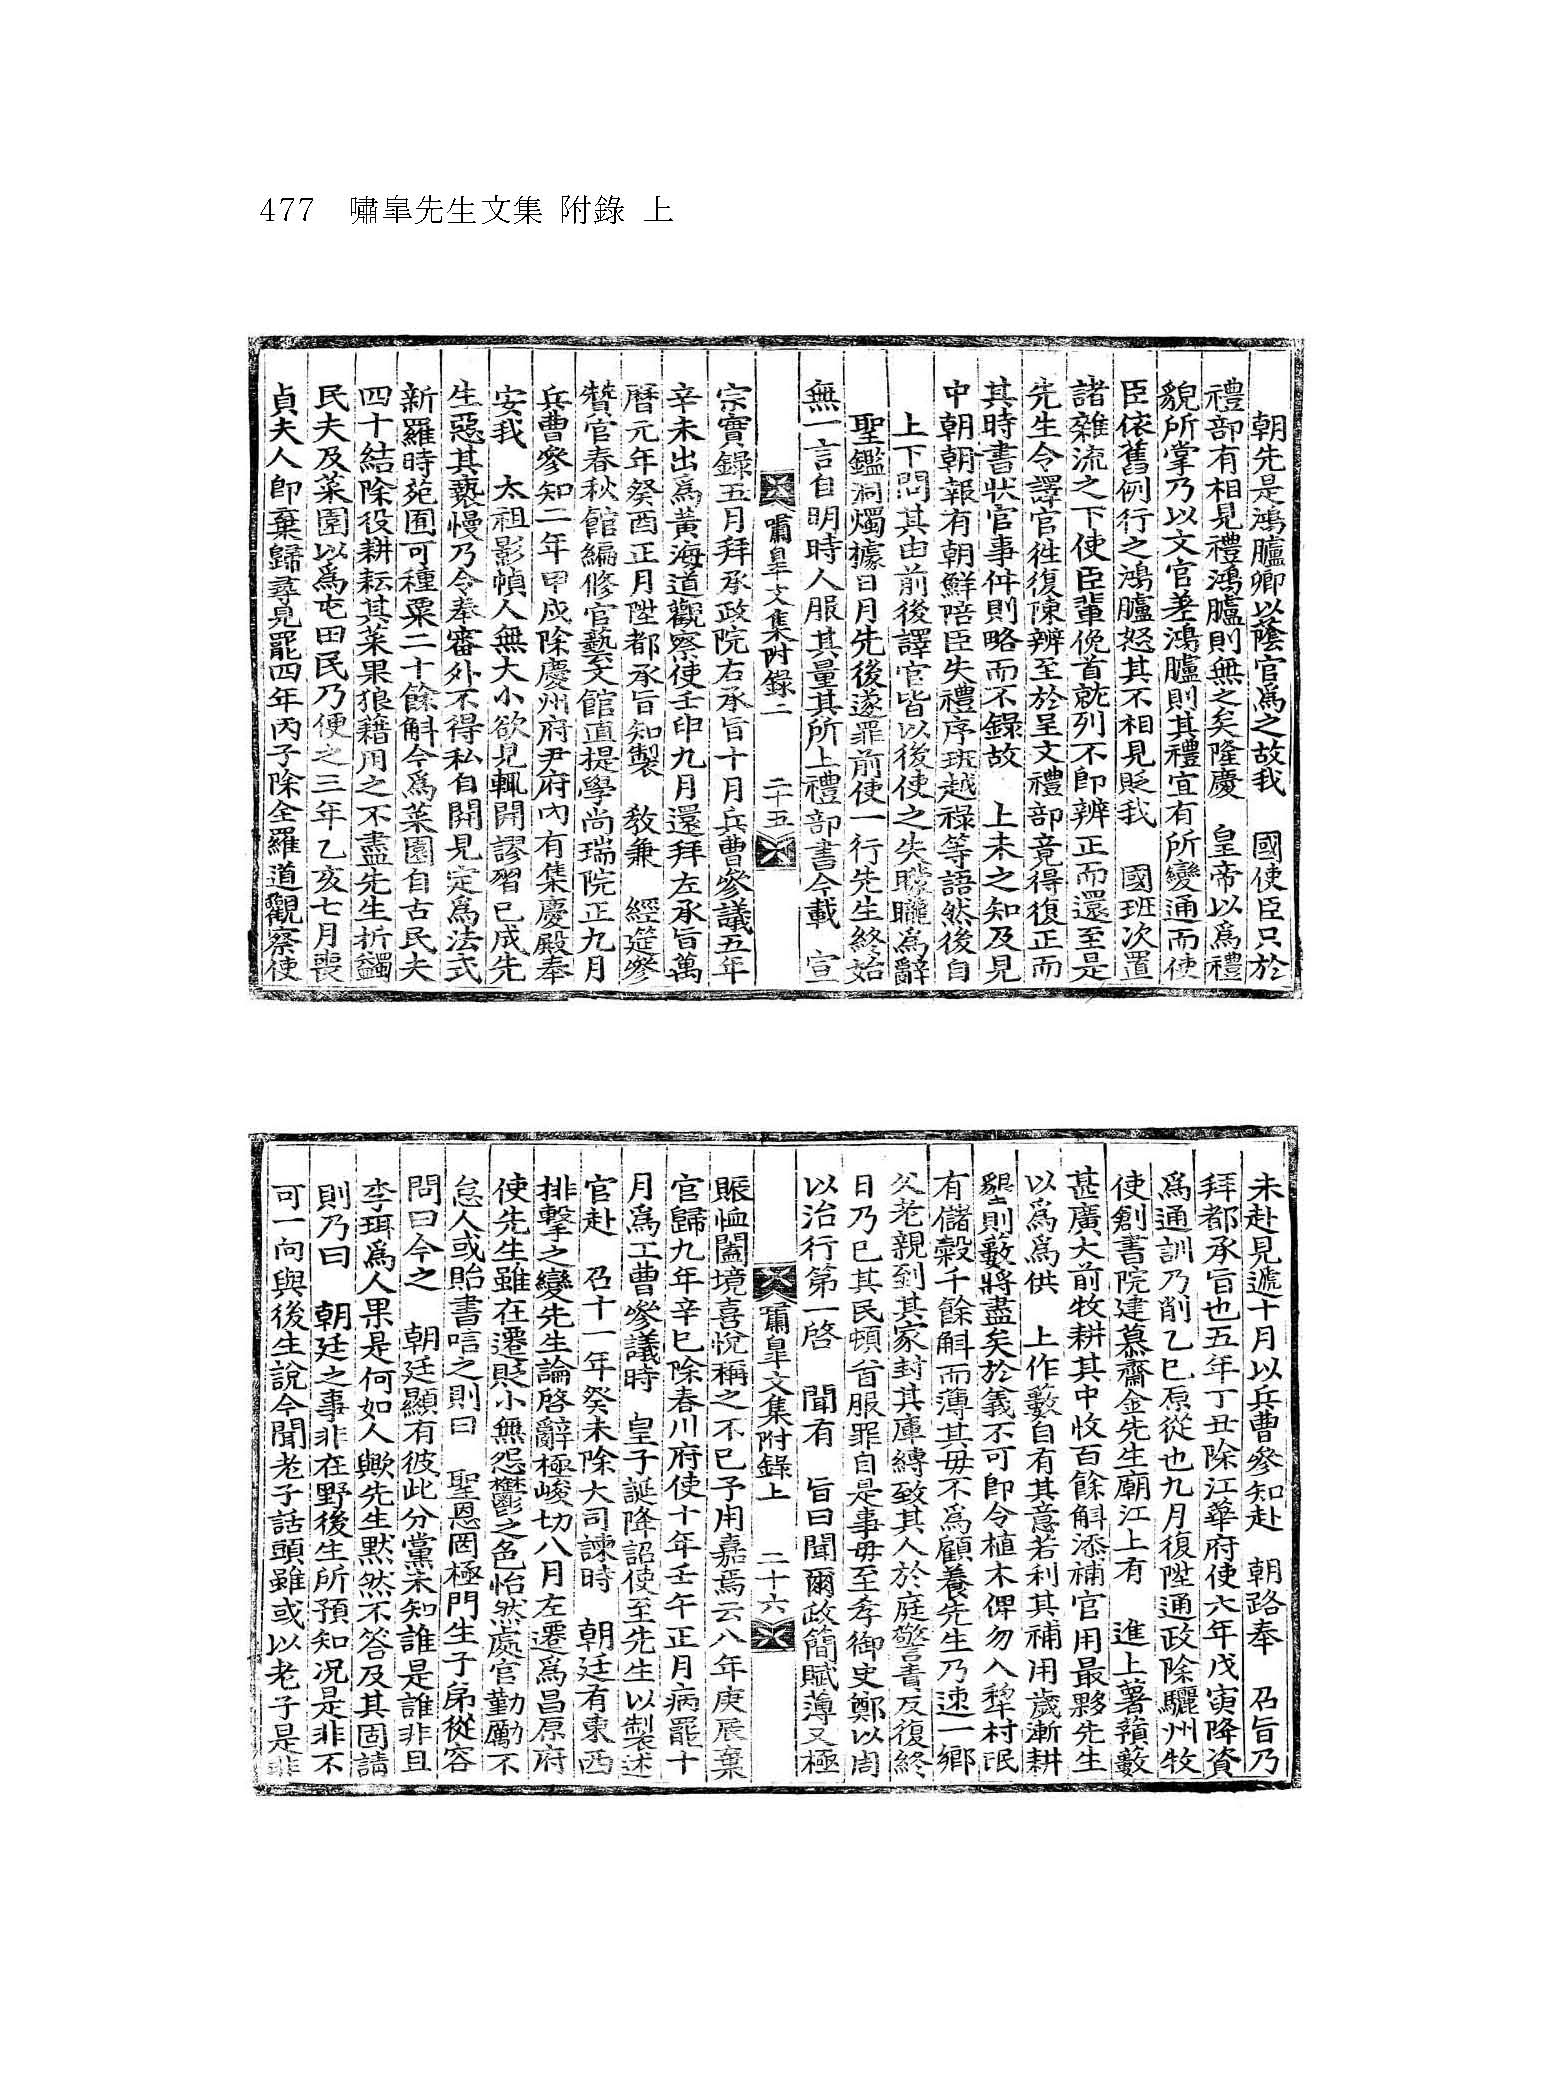 477 嘯皐先生文集 附錄 上
朝先是鴻臚卿以蔭官爲之故我 國使臣只於
禮部有相見禮鴻臚則無之矣隆慶 皇帝以爲禮
貌所掌乃以文官差鴻臚則其禮宜有所變通而使
臣依舊例行之鴻臚怒其不相見貶我 國班次置
諸雜流之下使臣輩俛首就列不卽辨正而還至是
先生令譯官往復陳辨至於呈文禮部竟得復正而
其時書狀官事件則略而不錄故 上未之知及見
中朝朝報有朝鮮陪臣失禮序班越祿等語然後自
上下問其由前後譯官皆以後使之失朦朧爲辭
聖鑑洞燭據日月先後遂罪前使一行先生終始
無一言自明時人服其量其所上禮部書今載 宣
嘯皐文集附錄二 二十五
宗實錄五月拜承政院右承旨十月兵曹參議五年
辛未出爲黃海道觀察使壬申九月還拜左承旨萬
曆元年癸酉正月陞都承旨知製 敎兼 經筵參
贊官春秋館編修官藝文館直提學尙瑞院正九月
兵曹參知二年甲戌除慶州府尹府內有集慶殿奉
安我 太祖影幀人無大小欲見輒開謬習已成先
生惡其褻慢乃令奉審外不得私自開見定爲法式
新羅時苑囿可種粟二十餘斛今爲菜園自古民夫
四十結除役耕耘其菜果狼藉用之不盡先生折蠲
民夫及菜園以爲屯田民乃便之三年乙亥七月喪
貞夫人卽棄歸尋見罷四年丙子除全羅道觀察使
未赴見遞十月以兵曹參知赴 朝路奉 召旨乃
拜都承旨也五年丁丑除江華府使六年戊寅降資
爲通訓乃削乙巳原從也九月復陞通政除驪州牧
使創書院建慕齋金先生廟江上有 進上薯蕷藪
甚廣大前牧耕其中收百餘斛添補官用最夥先生
以爲爲供 上作藪自有其意若利其補用歲漸耕
墾則藪將盡矣於義不可卽令植木俾勿入犂村氓
有儲穀千餘斛而薄其母不爲顧養先生乃速一鄉
父老親到其家封其庫縛致其人於庭警責反復終
日乃已其民頓首服罪自是事母至孝御史鄭以周
以治行第一啓 聞有 旨曰聞爾政簡賦薄又極
嘯皐文集附錄上 二十六
賑恤闔境喜悅稱之不已予用嘉焉云八年庚辰棄
官歸九年辛巳除春川府使十年壬午正月病罷十
月爲工曹參議時 皇子誕降詔使至先生以製述
官赴 召十一年癸未除大司諫時 朝廷有東西
排擊之變先生論啓辭極峻切八月左遷爲昌原府
使先生雖在遷貶小無怨鬱之色怡然處官勤勵不
怠人或貽書唁之則曰 聖恩罔極門生子弟從容
問曰今之 朝廷顯有彼此分黨未知誰是誰非且
李珥爲人果是何如人歟先生默然不答及其固請
則乃曰 朝廷之事非在野後生所預知况是非不
可一向與後生說今聞老子話頭雖或以老子是非